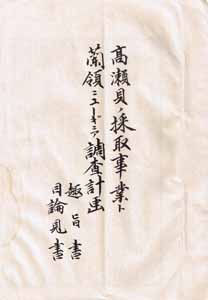 高瀬貝ノ採取事業ト
蘭領ニューギニア調査計画
趣旨書
目論見書